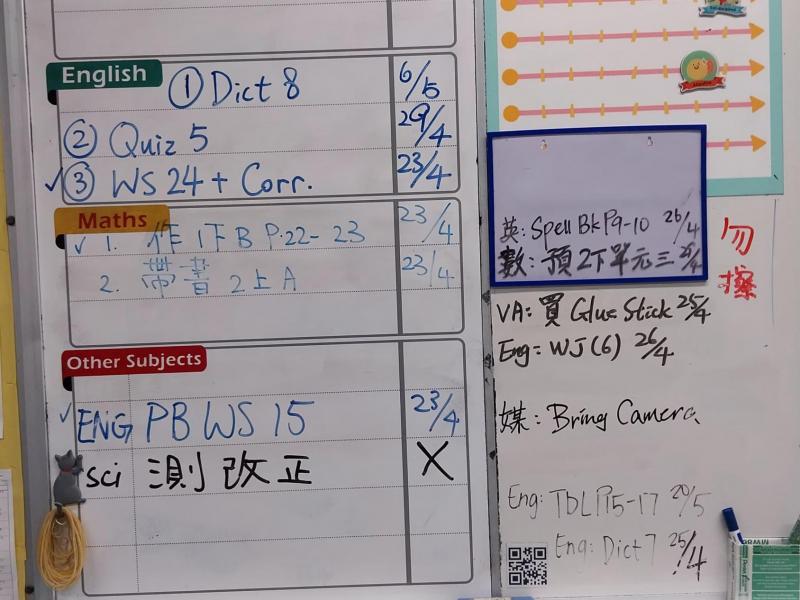 English
① Dict 8 6/5
② Quiz 5 29/4
✓ ③ WS 24 + Corr. 23/4
Maths
✓ 1. 作 1下B P.22-23 23/4
2. 帶書 2上A 23/4
Other Subjects
✓ ENG PB WS 15 23/4
sci 測改正 X
英: Spell Bk P9-10 26/4
數: 預 2下單元三 25/4
勿擦
VA: 買 Glue Stick 25/4
Eng: WJ (6) 26/4
媒: Bring Camera
Eng: TBLP15-17 20/5
Eng: Dict 7 25/4